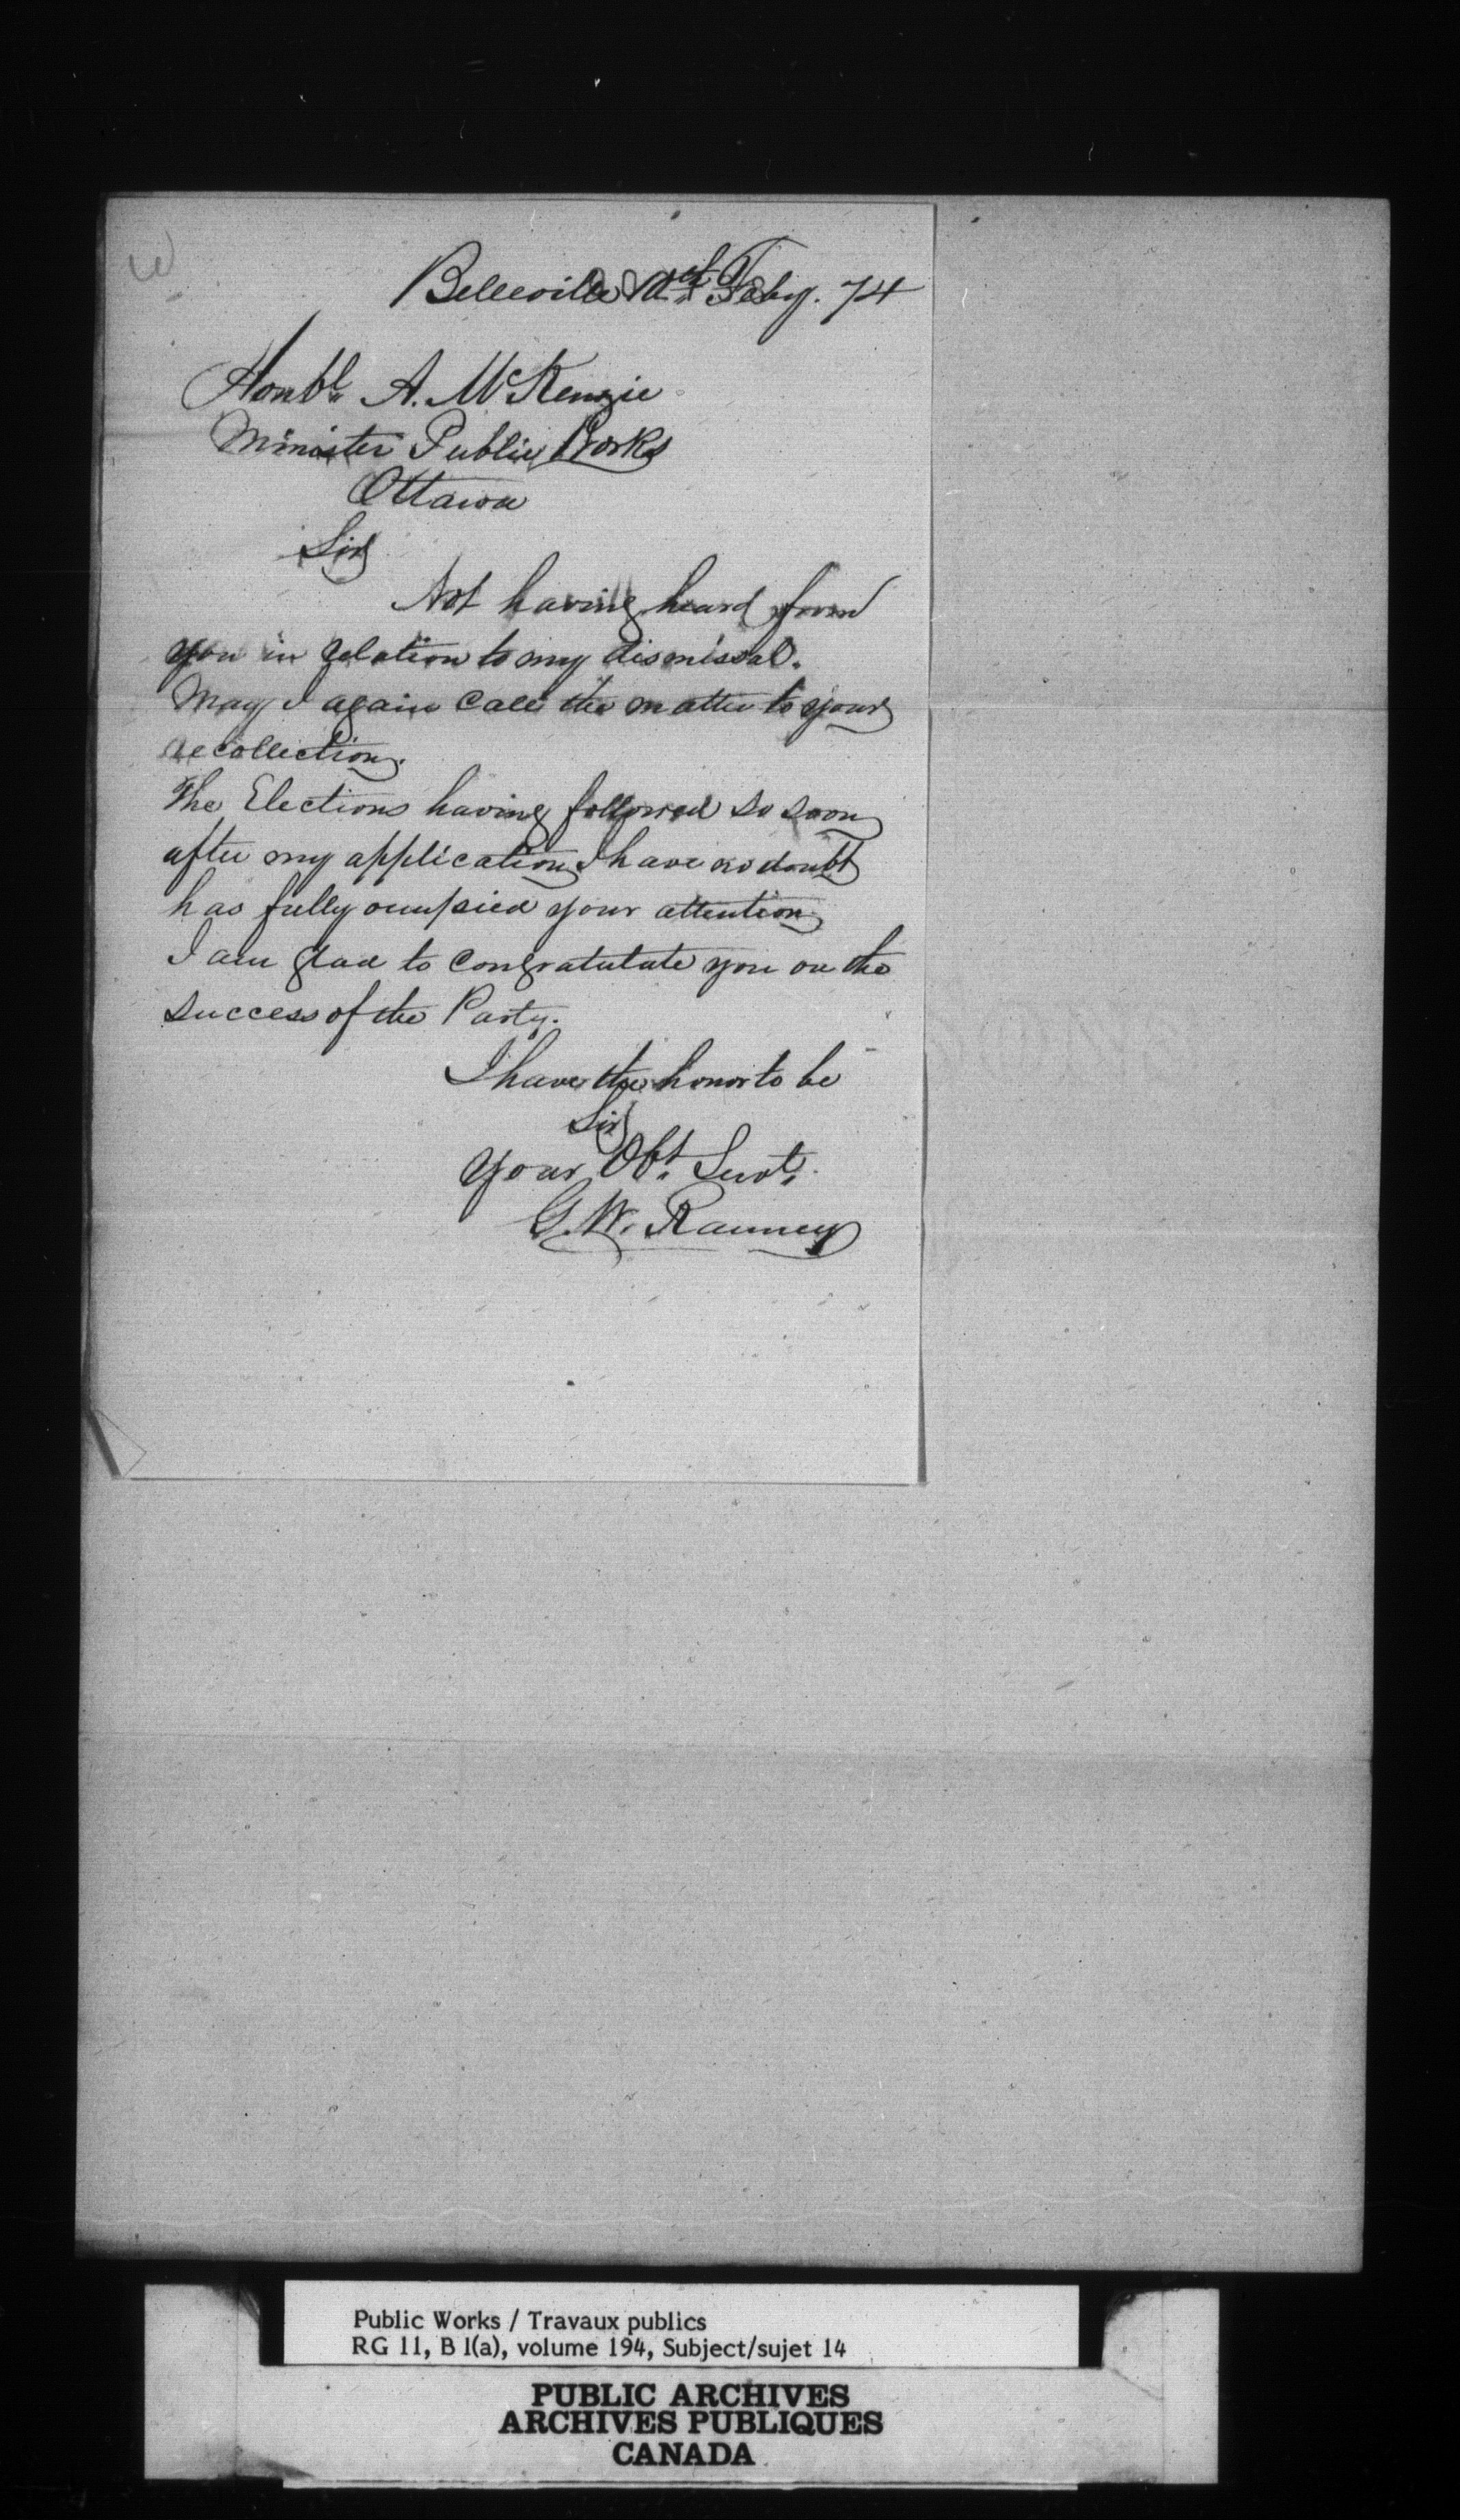 Belleville Feby. 74
Honbl. A. McKenzie
Minister Public Works
Ottawa
Sir
Not having heard from
you in relation to my dismissal.
May I again call the matter to your
recollection.
The Elections having followed so soon
after my application I have no doubt
has fully occupied your attention
I am glad to congratulate you on the
success of the Party.
I have the honor to be
Sir
Your Obt. Servt.
G. W. Ranney
Public Works / Travaux publics
RG 11, B 1(a), volume 194, Subject/sujet 14
PUBLIC ARCHIVES
ARCHIVES PUBLIQUES
CANADA